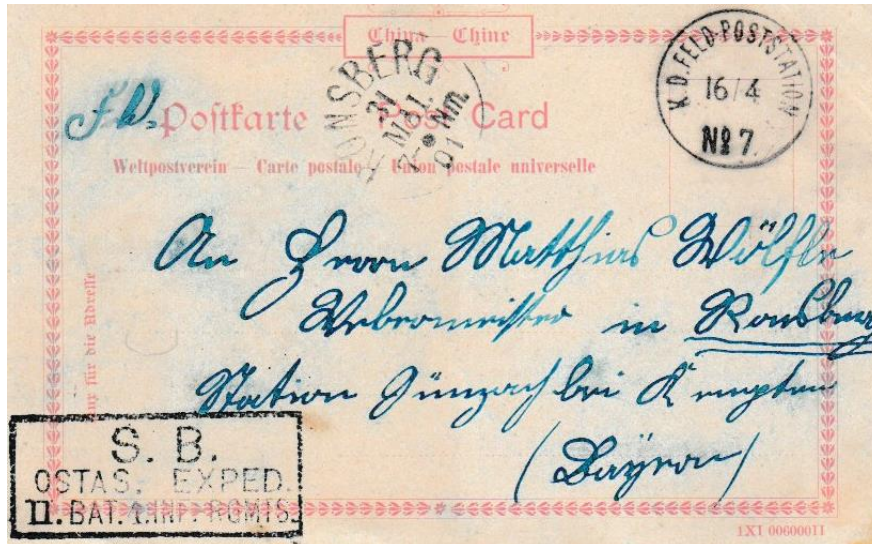 China – Chine
K.D. FELD-POSTSTATION
16/4
No 7.
RONSBERG
31 MAI.
Nm.
01
F.P.
Postkarte Post Card
Weltpostverein — Carte postale — Union postale universelle
An Herrn Matthias Wölfle
Webermeister in Ronsberg
Station Günzach bei Kempten
(Bayern)
Nur für die Adresse
S. B.
OSTAS. EXPED.
II. BAT. INF. RGMTS.
1X1 00600011